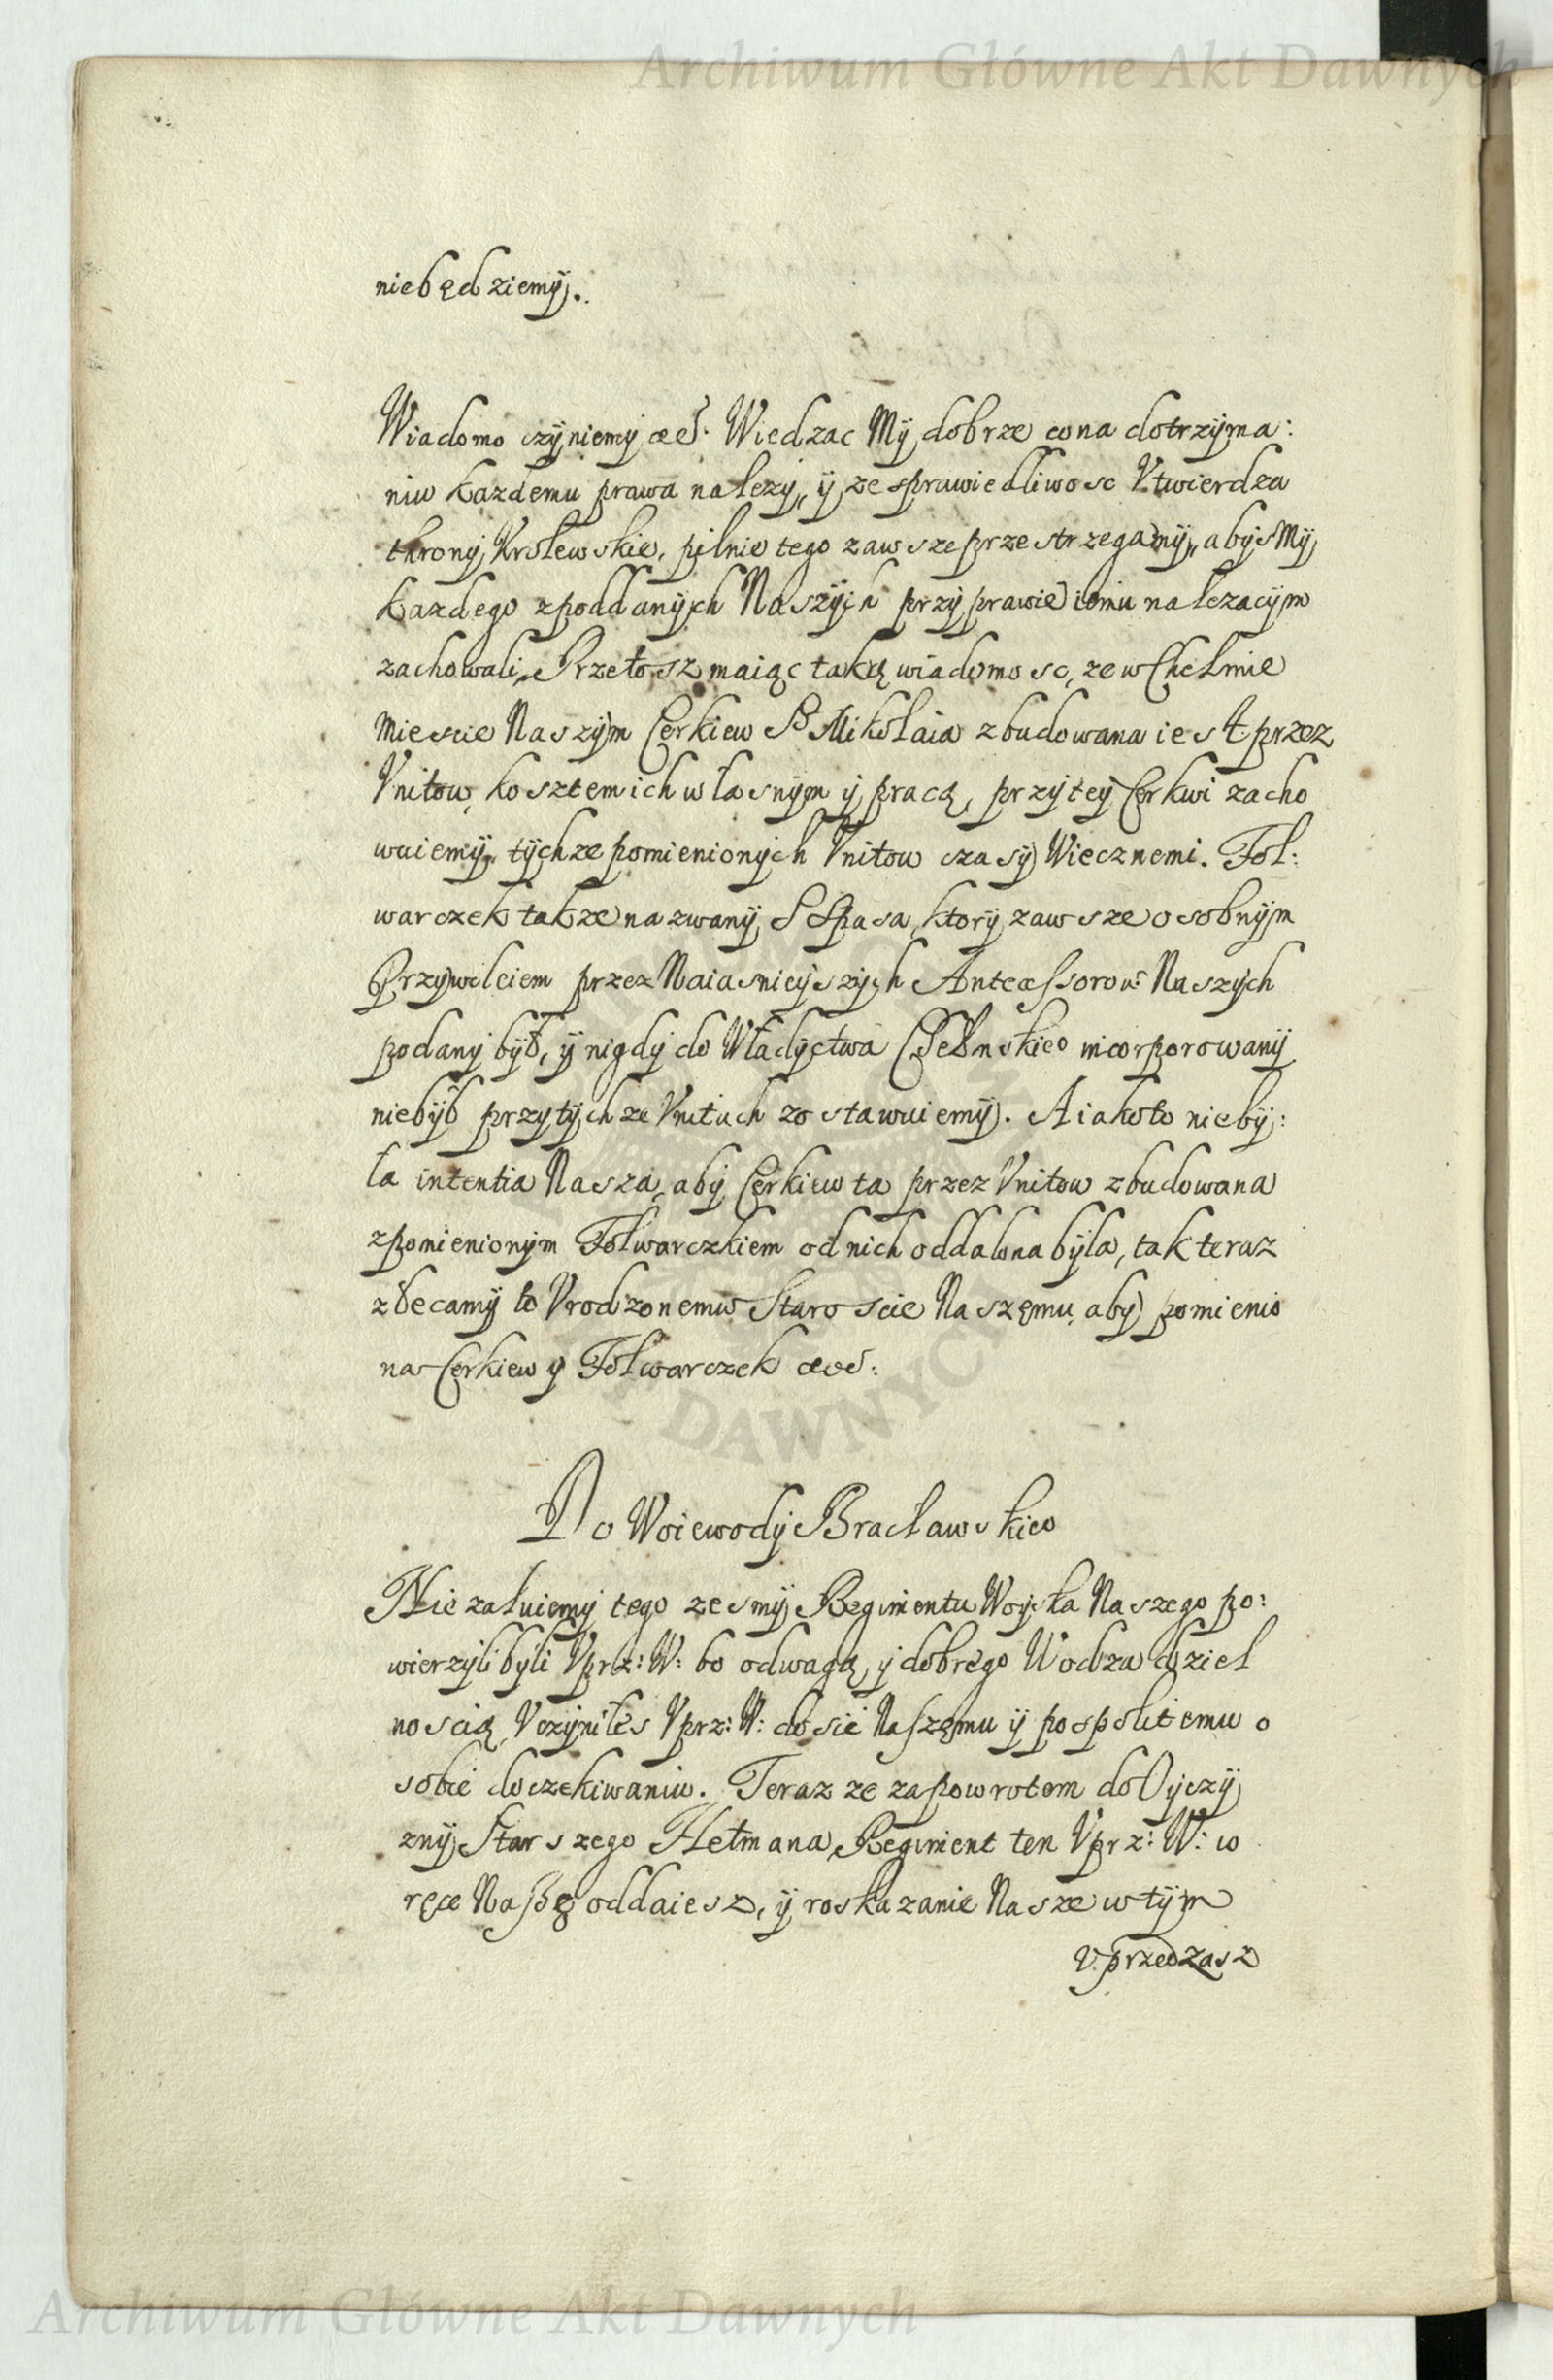 Archiwum Główne Akt Dawnych
niebędziemÿ.
Wiadomo czÿniemÿ etc. Wiedzac Mÿ dobrze co na dotrzÿma:
niu kazdemu prawa nalezÿ, ÿ ze sprawiedliwosc Vtwierdza
thronÿ Krolewskie, pilnie tego zawsze przestrzegamÿ, abÿsmÿ
kazdego z poddanÿch Naszÿch przÿ prawie iemu nalezacÿm
zachowali. Przetosz maiąc taką wiadomosc, ze w Chełmie
miescie Naszÿm Cerkiew S° Mikołaia zbudowana iest przez
Vnitow kosztem ich własnÿm ÿ pracą, przÿ teÿ Cerkwi zacho
wuiemÿ tÿchze pomienionÿch Vnitow czasÿ Wiecznemi. Fol:
warczek takze nazwanÿ S Spasa, ktorÿ zawsze osobnÿm
Przÿwileiem przez Naiasnieÿszÿch Antecessorow Naszÿch
podanÿ bÿł, ÿ nigdÿ do Władÿctwa Chełmskieo incorporowanÿ
niebÿł przÿ tÿchze Vnitach zostawuiemÿ. A iako to niebÿ:
ła intentia Nasza, abÿ Cerkiew ta przez Vnitow zbudowana
z pomienionÿm Folwarczkiem od nich oddalona bÿła, tak teraz
zlecamÿ to Vrodzonemu Staroscie Naszemu, abÿ pomienio
na Cerkiew ÿ Folwarczek etc:
Do Woiewodÿ Bracławskieo
Nie załuiemÿ tego zesmÿ Regimentu Woÿska Naszego po:
wierzÿli bÿli Vprz: W: bo odwagą, ÿ dobrego Wodza dziel
noscią, Vczÿniłes Vprz: W: dosic Naszemu ÿ pospolitemu o
sobie doczekiwaniu. Teraz ze za powrotem do Oÿczÿ
znÿ Starszego Hetmana Regiment ten Vprz: W: w
ręce Naszę oddaiesz, ÿ roskazanie Nasze w tÿm
Vprzedzasz
DAWNYCH
Archiwum Główne Akt Dawnych